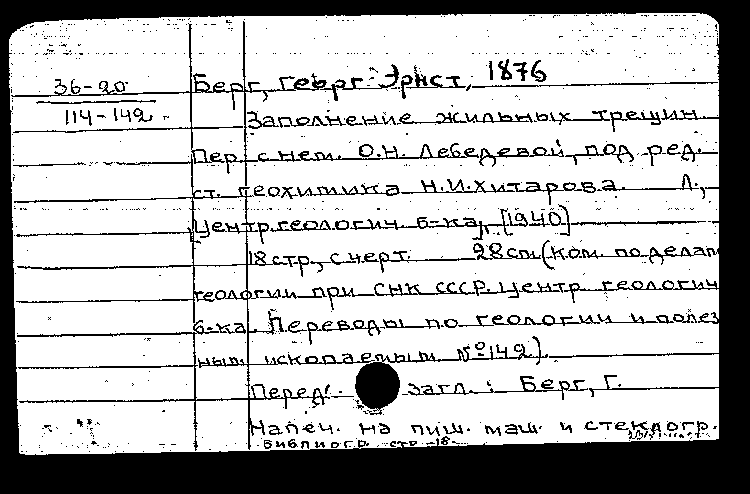 36-20
114-142
Берг, Георг Эрнст, 1876
Заполнение жильных трещин.
Пер. с нем. О.Н. Лебедевой, под ред.
ст. геохимика Н.И.Хитарова. Л.,
Центр.геологич. б-ка, [1940]
18 стр., с черт. 28см (Ком. по делам
геологии при СНК СССР. Центр. геологич
б-ка. Переводы по геологии и полез
ным ископаемым №142).
Перед загл.: Берг, Г.
Напеч. на пиш. маш. и стеклогр.
Библиогр. стр. 18